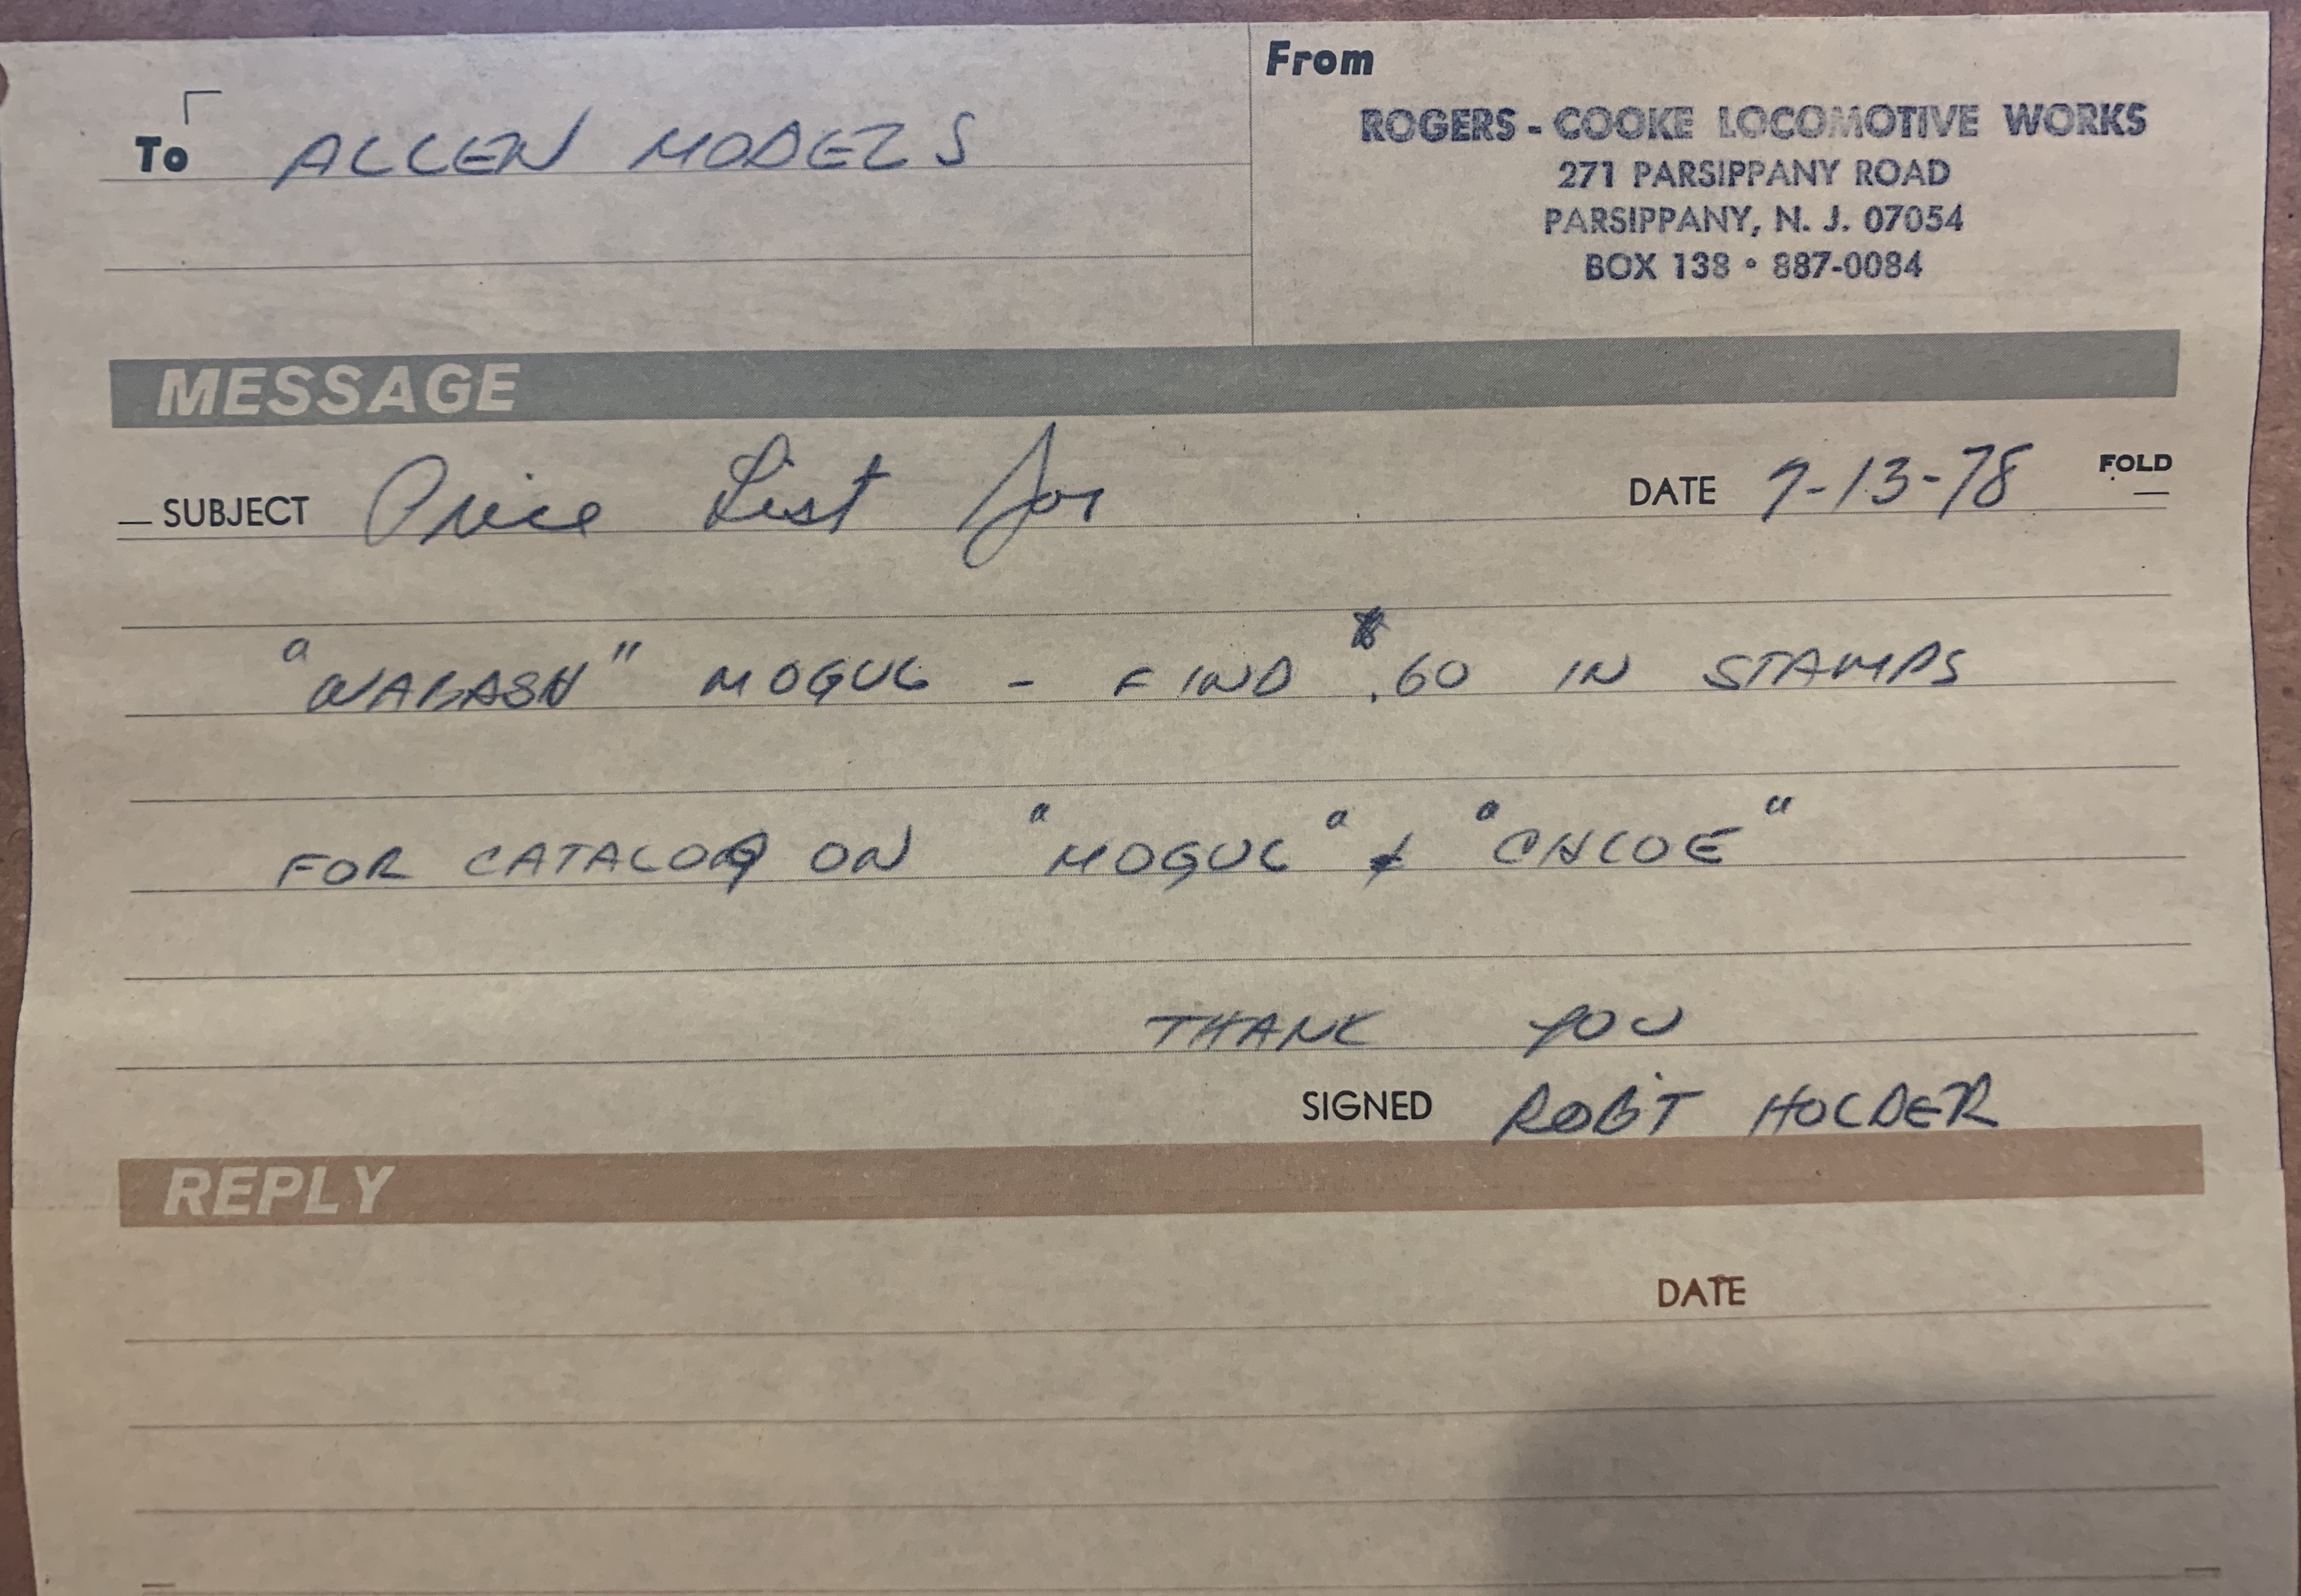 From
To ALLEN MODELS
ROGERS - COOKE LOCOMOTIVE WORKS
271 PARSIPPANY ROAD
PARSIPPANY, N. J. 07054
BOX 138 • 887-0084
MESSAGE
SUBJECT Price List for
DATE 7-13-78
FOLD
"WABASH" MOGUL - FIND $.60 IN STAMPS
FOR CATALOG ON "MOGUL" & "CHLOE"
THANK YOU
SIGNED ROB'T HOLDER
REPLY
DATE